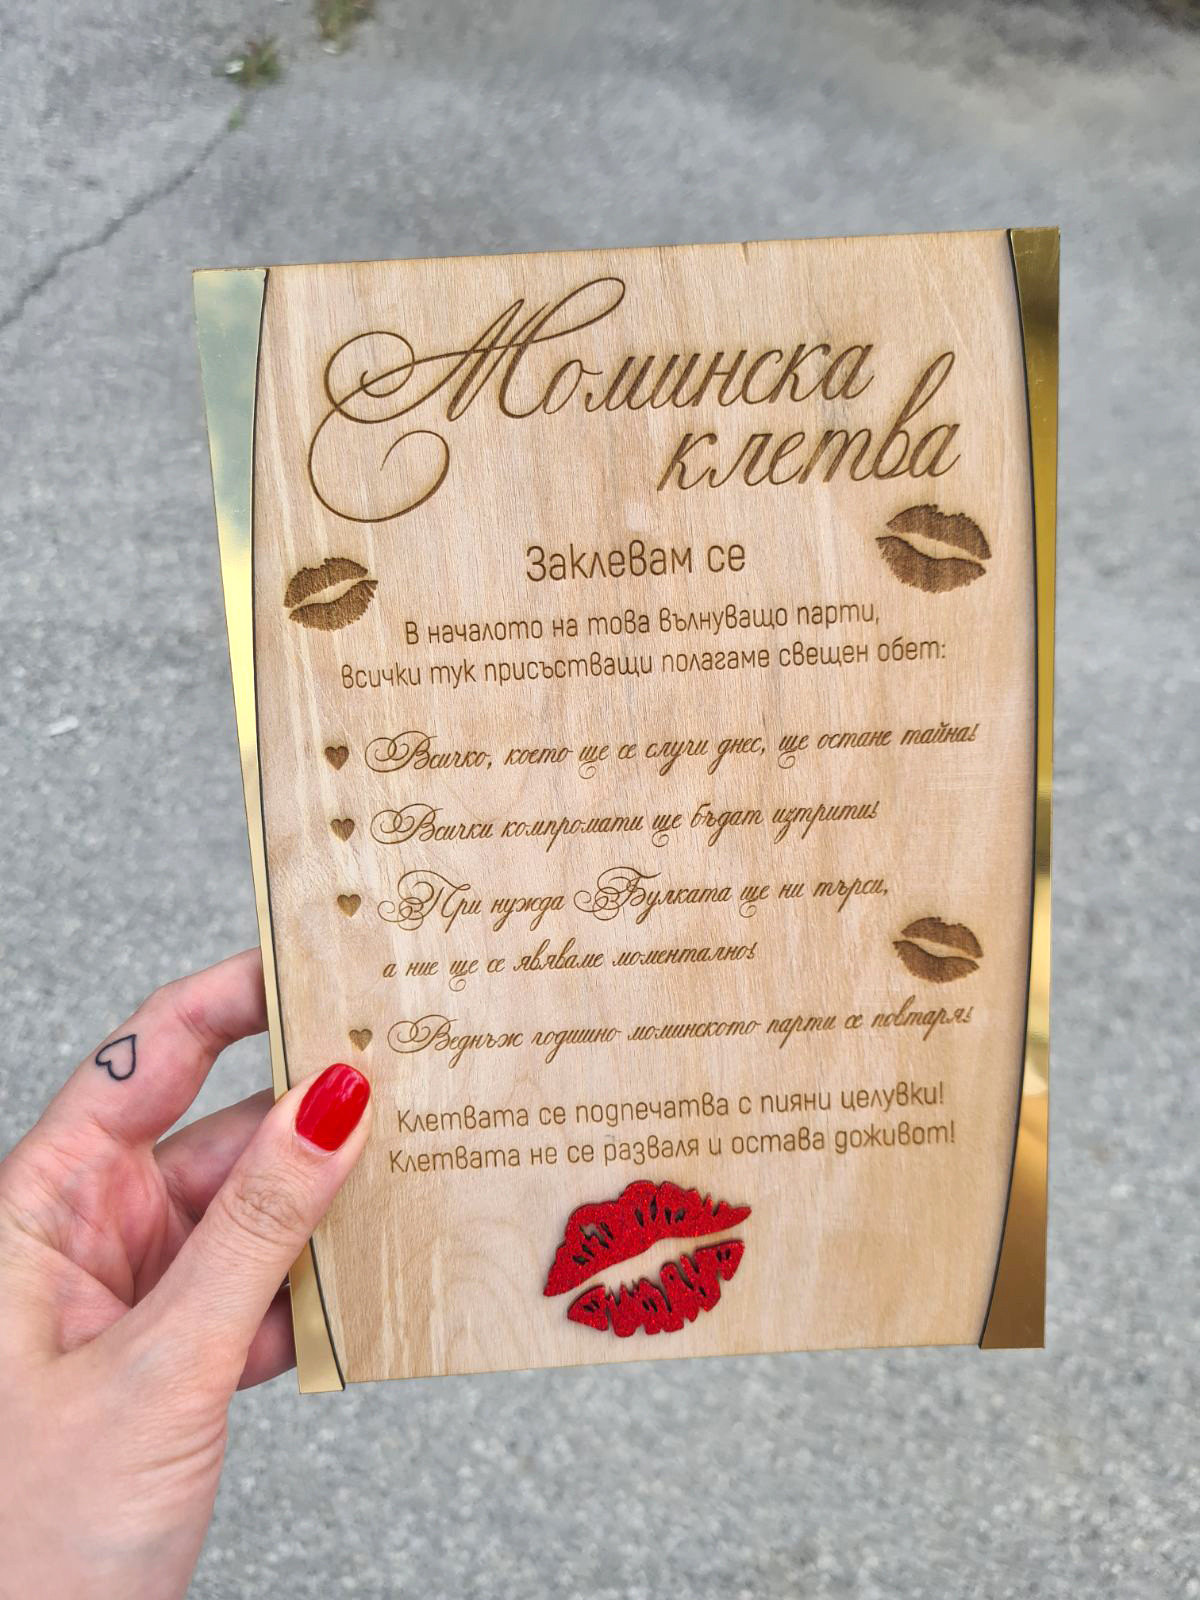 Моминска
клетва
Заклевам се
В началото на това вълнуващо парти,
всички тук присъстващи полагаме свещен обет:
Всичко, което ще се случи днес, ще остане тайна!
Всички компромати ще бъдат изтрити!
При нужда Булката ще ни търси,
а ние ще се явяваме моментално!
Веднъж годишно моминското парти се повтаря!
Клетвата се подпечатва с пияни целувки!
Клетвата не се разваля и остава доживот!